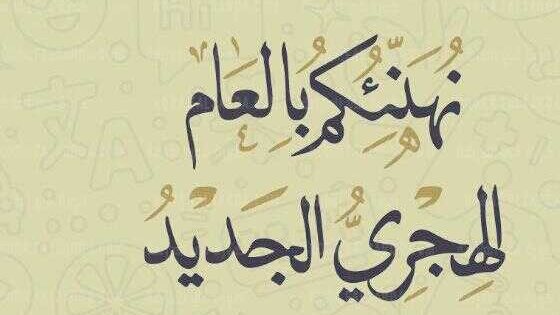 نُهَنِّئُكُم بُالعَام
الهِجْرِيُّ الجَديْدُ